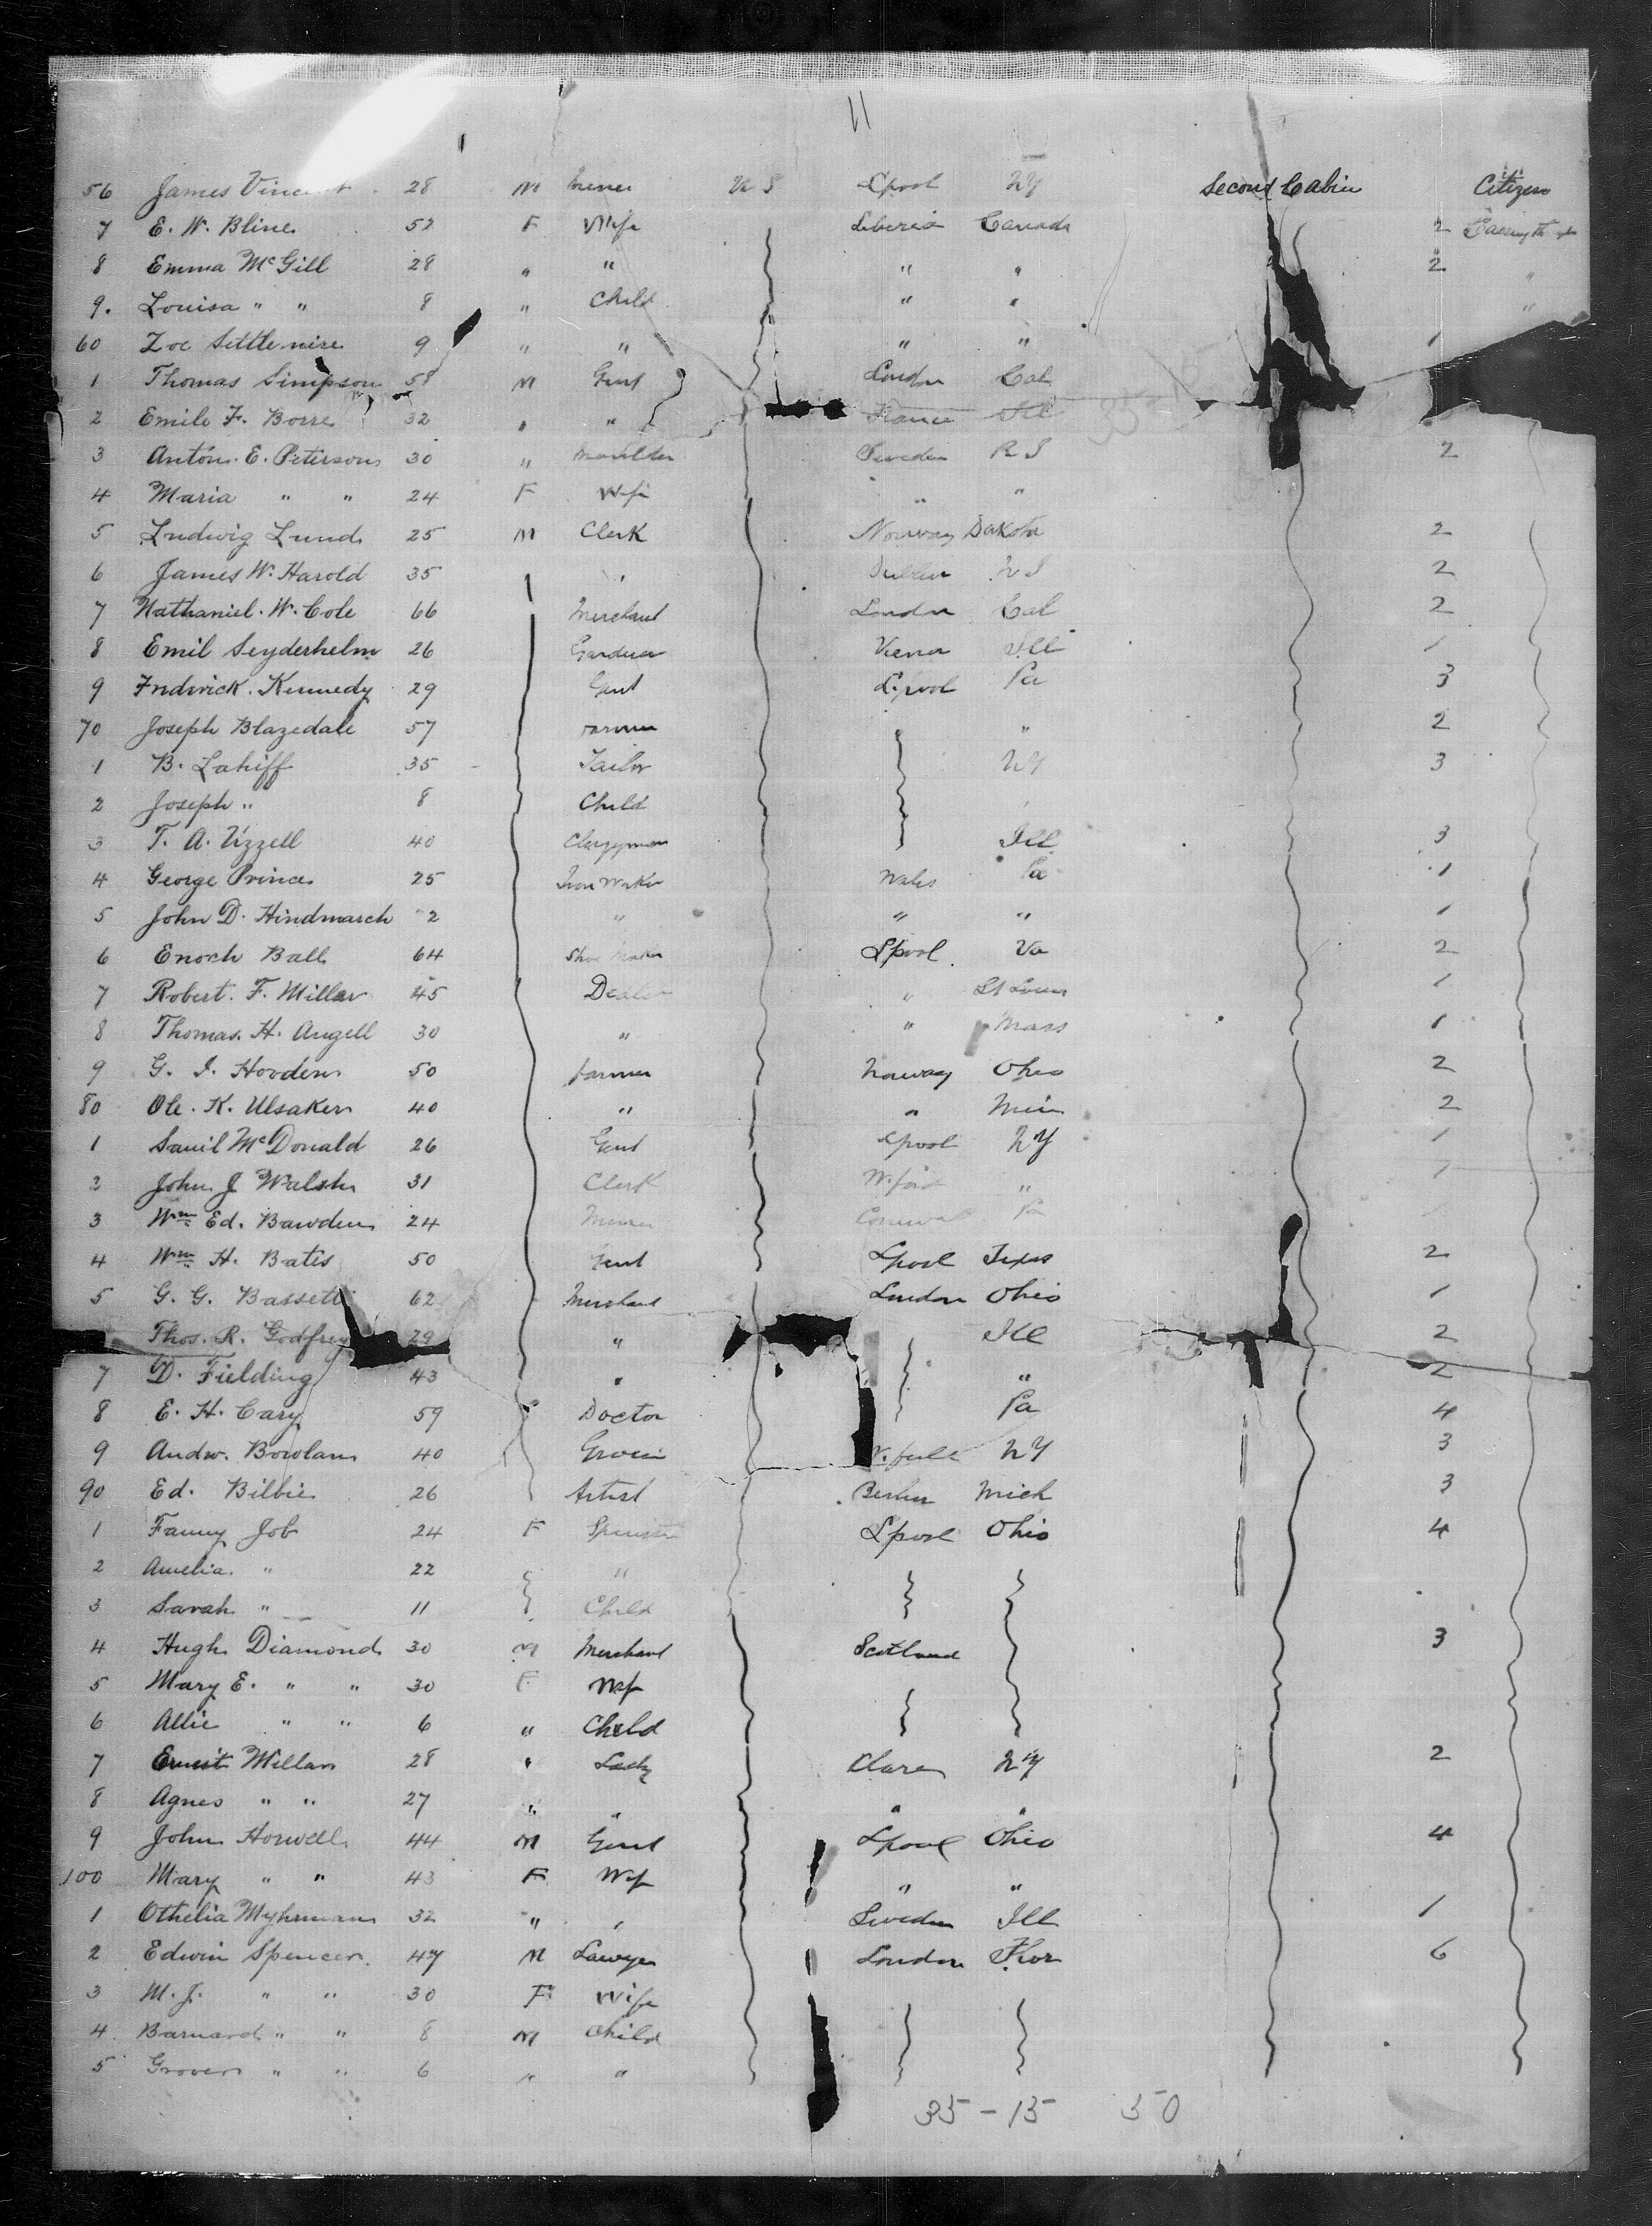 11
56 James Vincent 28 M U S L'pool N Y Second Cabin Citizen
7 E. W. Bline 52 F Wife Liberia Canada 2 Passing through
8 Emma McGill 28 " " " " 2 "
9. Louisa " " 8 " Child " " "
60 Zoe Settlemire 9 " " " " 1
1 Thomas Simpson M Gent London Cal
2 Emile F. Borre 32 " " France Ill
3 Anton. E. Peterson 30 " Moulder Sweden R I 2
4 Maria " " 24 F Wife " "
5 Ludwig Lund 25 M Clerk Norway Dakota 2
6 James W. Harold 35 " Dublin 2
7 Nathaniel. W. Cole 66 Merchant London Cal 2
8 Emil Seyderhelm 26 Gardner Viena Ill 1
9 Fredrick. Kennedy 29 Gent L'pool Pa 3
70 Joseph Blazedale 57 Farmer " 2
1 B. Lahiff 35 Tailor N Y 3
2 Joseph " 8 Child
3 T. A. Uzzell 40 Clergyman Ill 3
4 George Prince 25 Iron Worker Wales Pa 1
5 John D. Hindmarch 2 " " " 1
6 Enoch Ball 64 Shoe Maker L'pool Va 2
7 Robert. F. Millar 45 Dealer " St Louis 1
8 Thomas. H. Angell 30 " " Mass 1
9 G. I. Hovden 50 farmer Norway Ohio 2
80 Ole. K. Ulsaker 40 " " Min 2
1 Saml McDonald 26 Gent L'pool N Y 1
2 John J Walsh 31 Clerk W.ford " 1
3 Wm Ed. Bawden 24 Miner Cornwall Pa 1
4 Wm H. Bates 50 Gent L'pool Texas 2
5 G. G. Bassett 62 Merchant London Ohio 1
Thos. R. Godfrey 29 " Ill 2
7 D. Fielding 43 " " 2
8 E. H. Cary 59 Doctor Pa 4
9 Andw. Bowlan 40 N Y 3
90 Ed. Bilbie 26 Artist Berlin Mich 3
1 Fanny Job 24 F Spinster L'pool Ohio 4
2 Amelia " 22 "
3 Sarah " 11 Child
4 Hugh Diamond 30 M Merchant Scotland 3
5 Mary E. " " 30 F Wife
6 Allie " " 6 " Child
7 Ernest Millar 28 " Lady Clare N Y 2
8 Agnes " " 27 " " " "
9 John Horwell 44 M Gent L'pool Ohio 4
100 Mary " " 43 F Wife " "
1 Othelia Myhrman 32 " " Sweden Ill 1
2 Edwin Spencer 47 M Lawyer London Flor 6
3 M. J. " " 30 F Wife
4 Barnard " " 8 M Child
5 Grover " " 6 " "
35 - 15 50